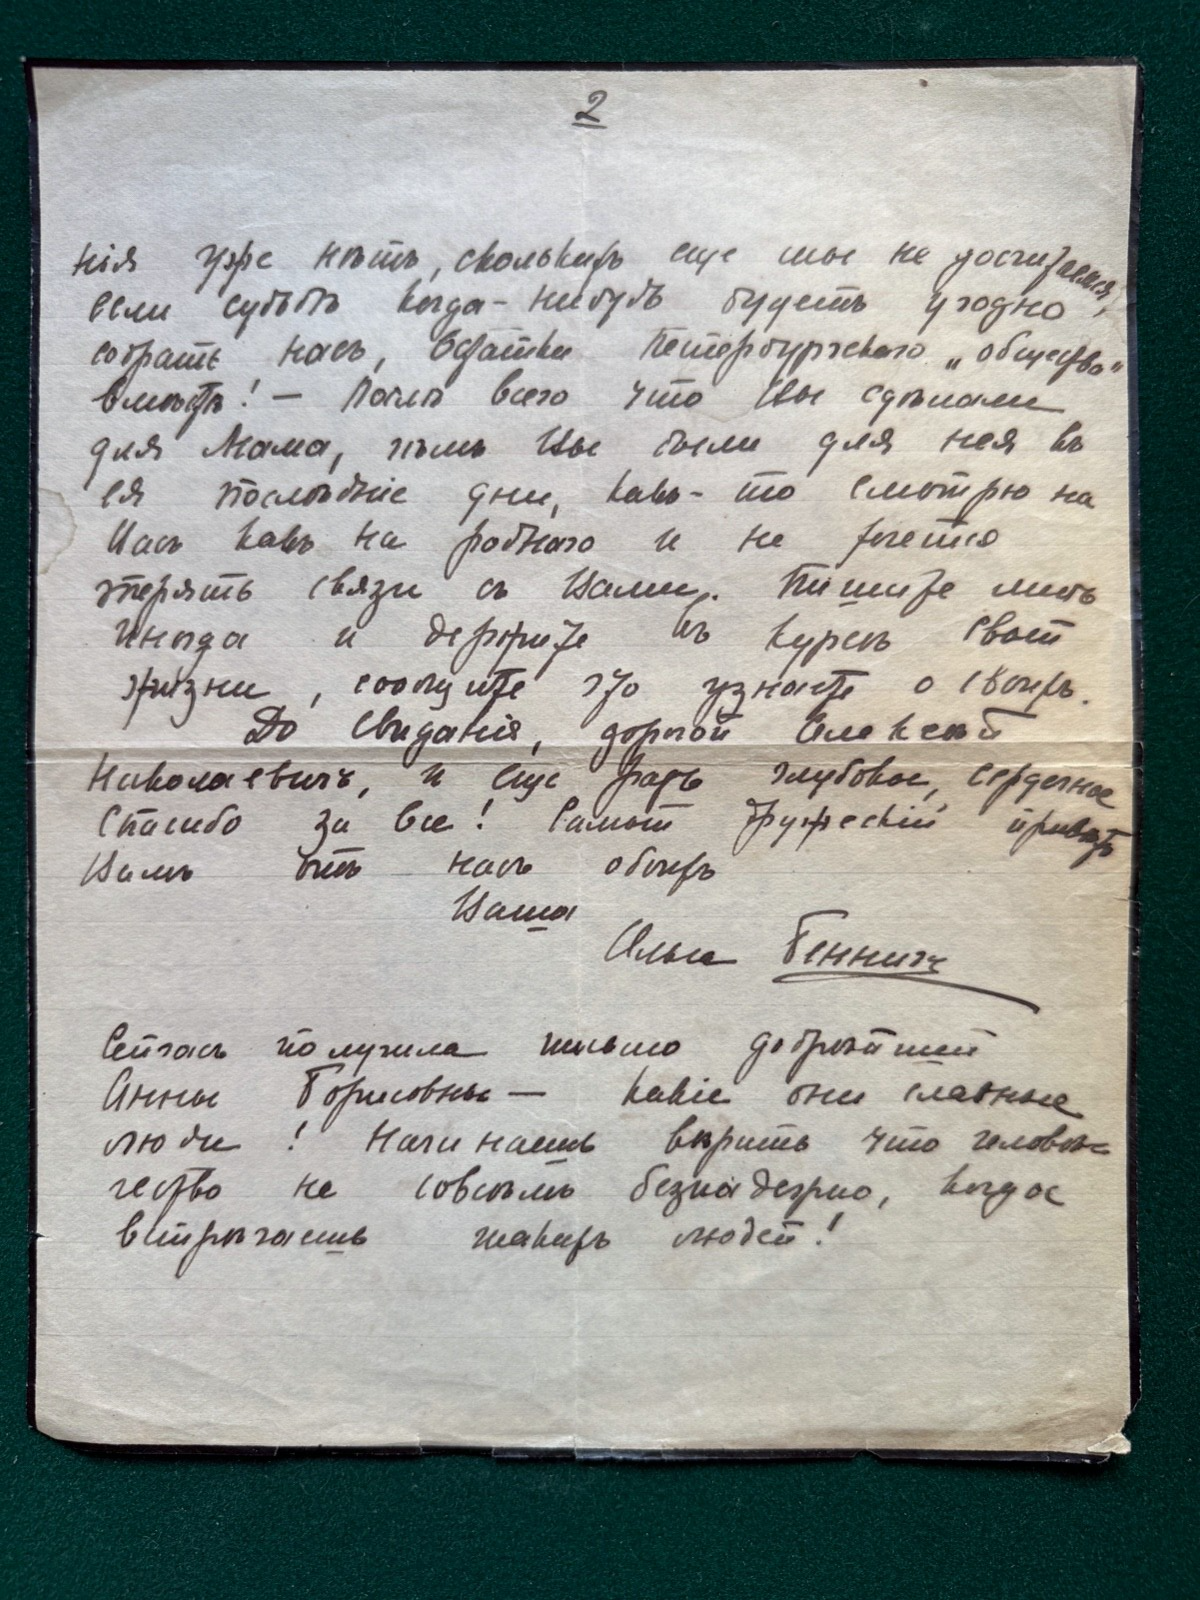 2
нія уже нѣтъ, сколькихъ еще мы не досчитаемся,
если судьбѣ когда-нибудь будетъ угодно
собрать насъ, остатки Петербургскаго „общества“
вмѣстѣ! — Послѣ всего что Вы сдѣлали
для Мама, чѣмъ Вы были для нея въ
ея послѣдніе дни, какъ-то смотрю на
Васъ какъ на роднаго и не хочется
терять связи съ Вами. Пишите мнѣ
иногда и держите въ курсѣ своей
жизни, сообщите что узнаете о своихъ.
До свиданія, дорогой Алексѣй
Николаевичъ, и еще разъ глубокое, сердечное
спасибо за все! Самый дружескій привѣтъ
Вамъ отъ насъ обоихъ
Ваша
Ольга Беннигс
Сейчасъ получила письмо добрѣйшей
Анны Борисовны — какіе они славные
люди! Начинаешь вѣрить что человѣ-
чество не совсѣмъ безнадежно, когда
встрѣчаешь такихъ людей!